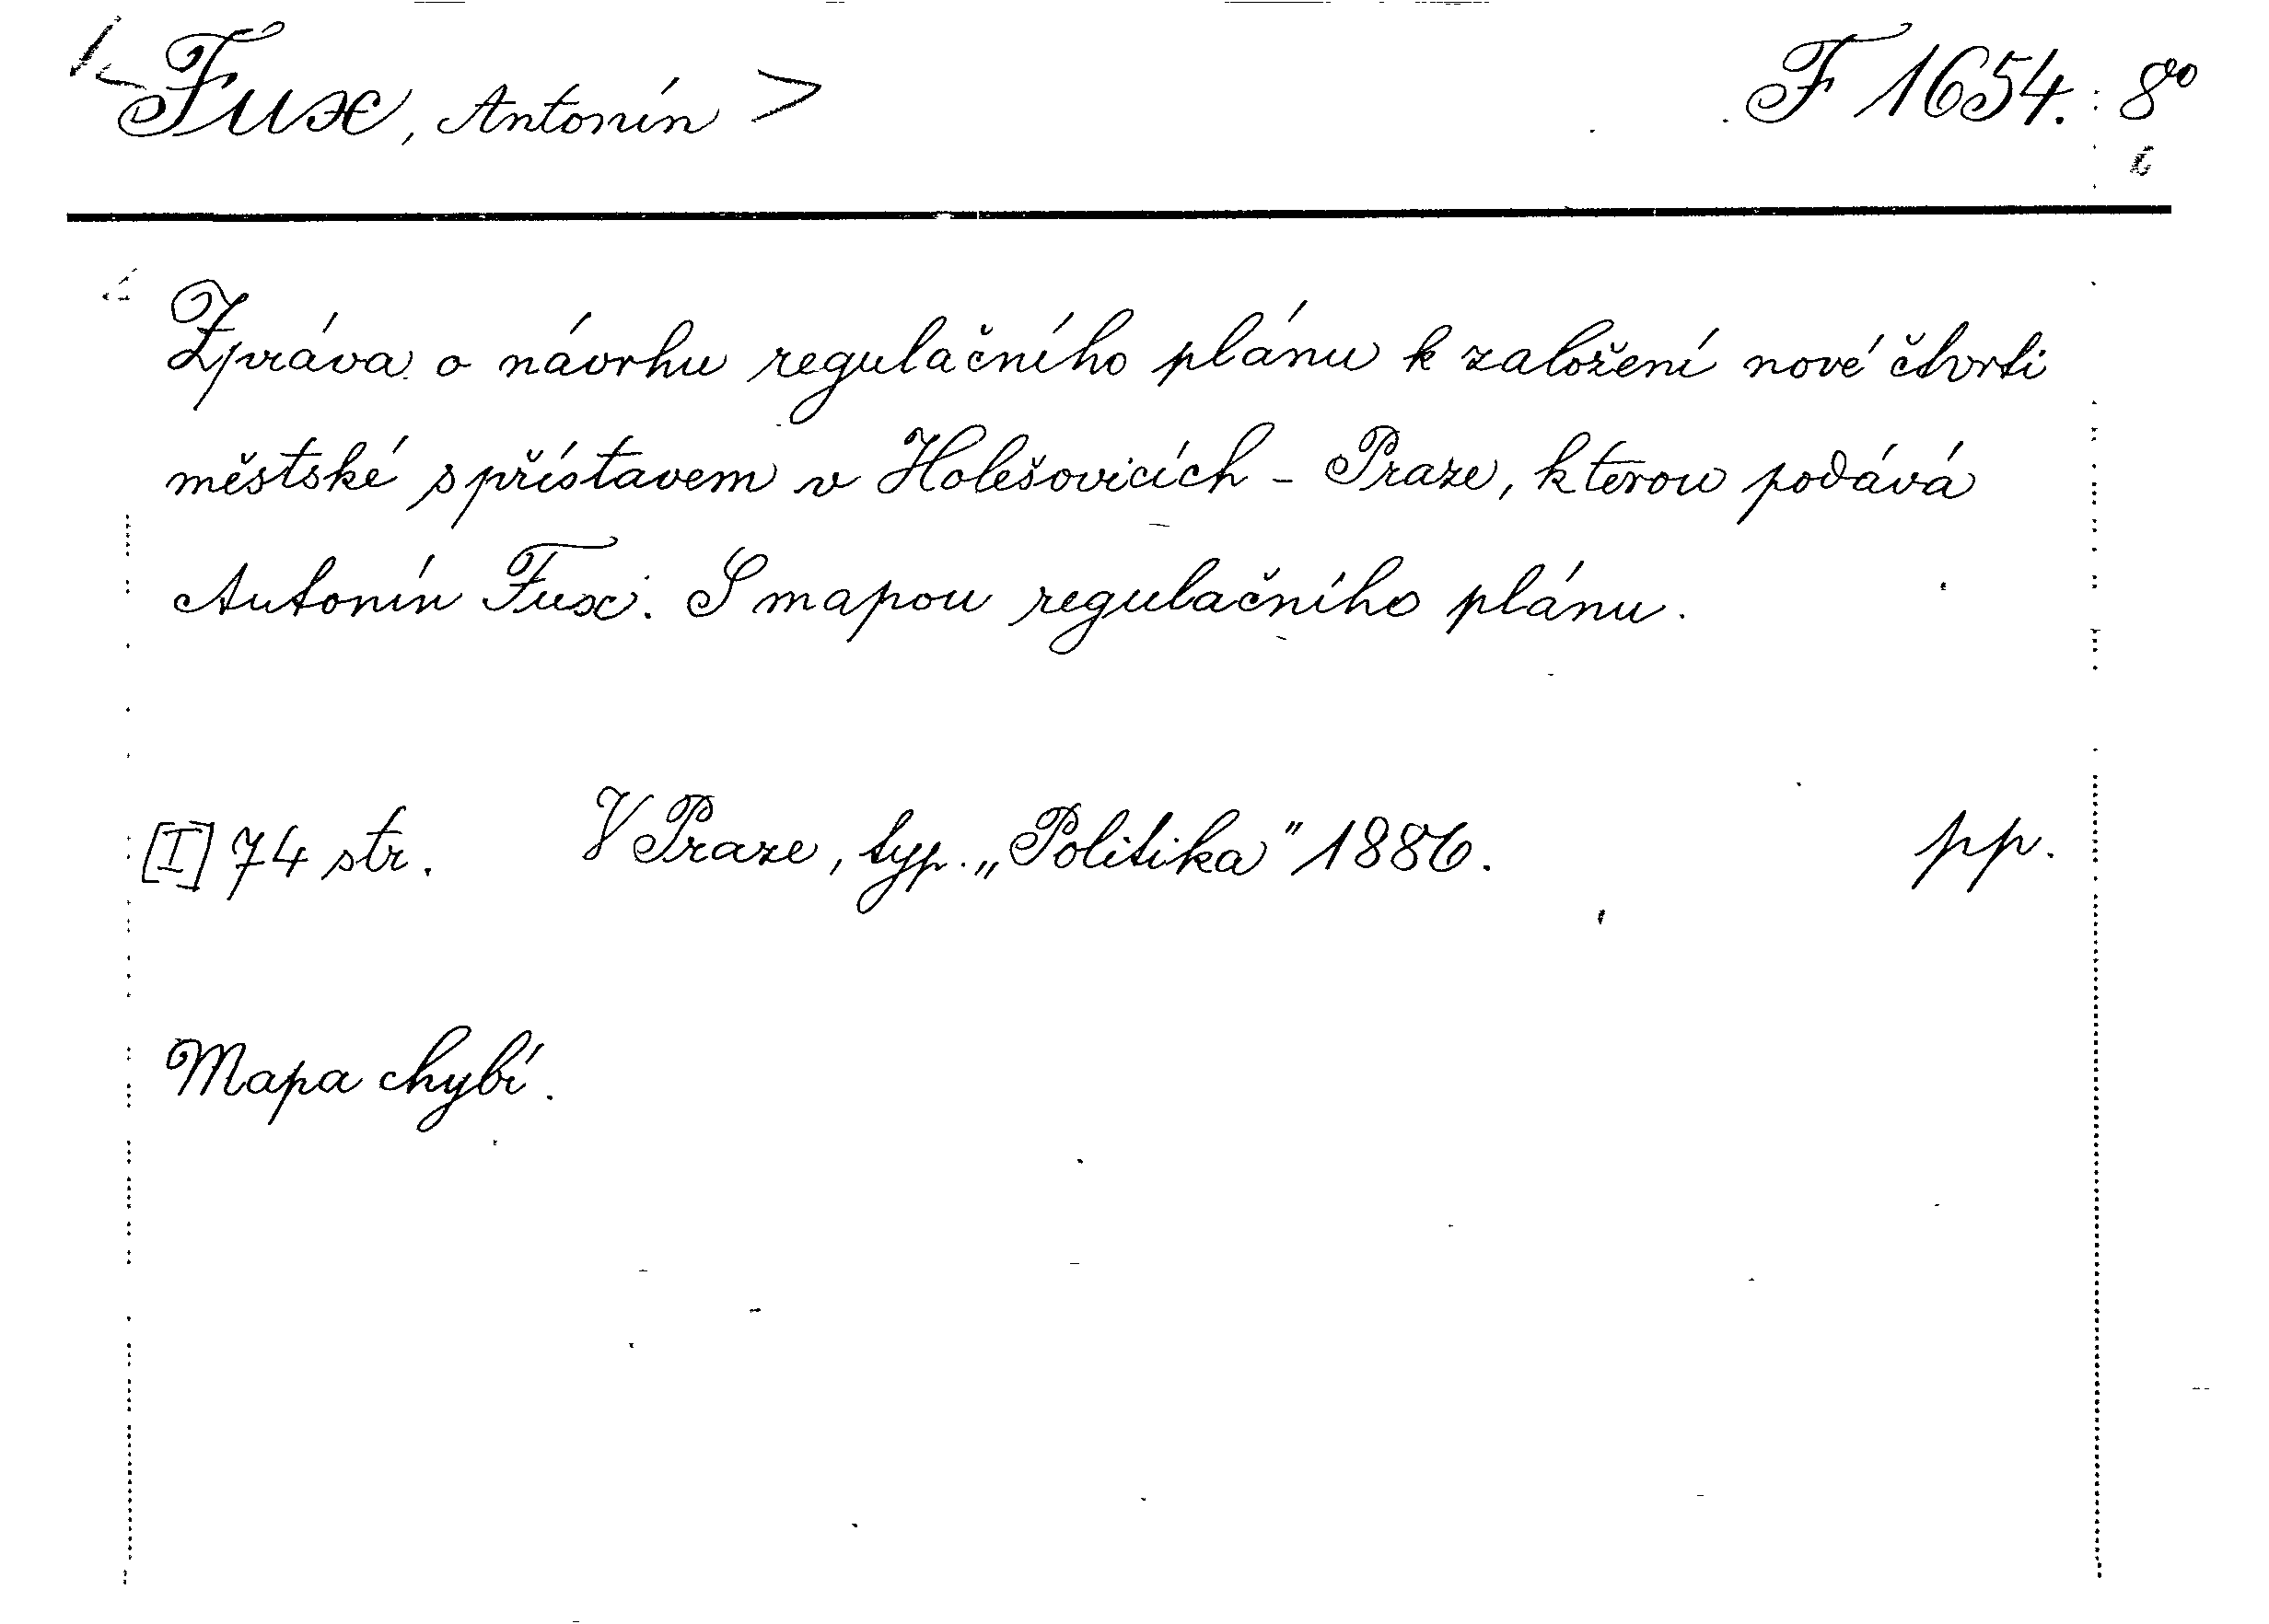 Fux, Antonín > F 1654. 8º
Zpráva o návrhu regulačního plánu k založení nové čtvrti
městské s přístavem v Holešovicích - Praze, kterou podává
Antonín Fux. S mapou regulačního plánu.
[I] 74 str. V Praze, typ. „Politika" 1886. pp.
Mapa chybí.